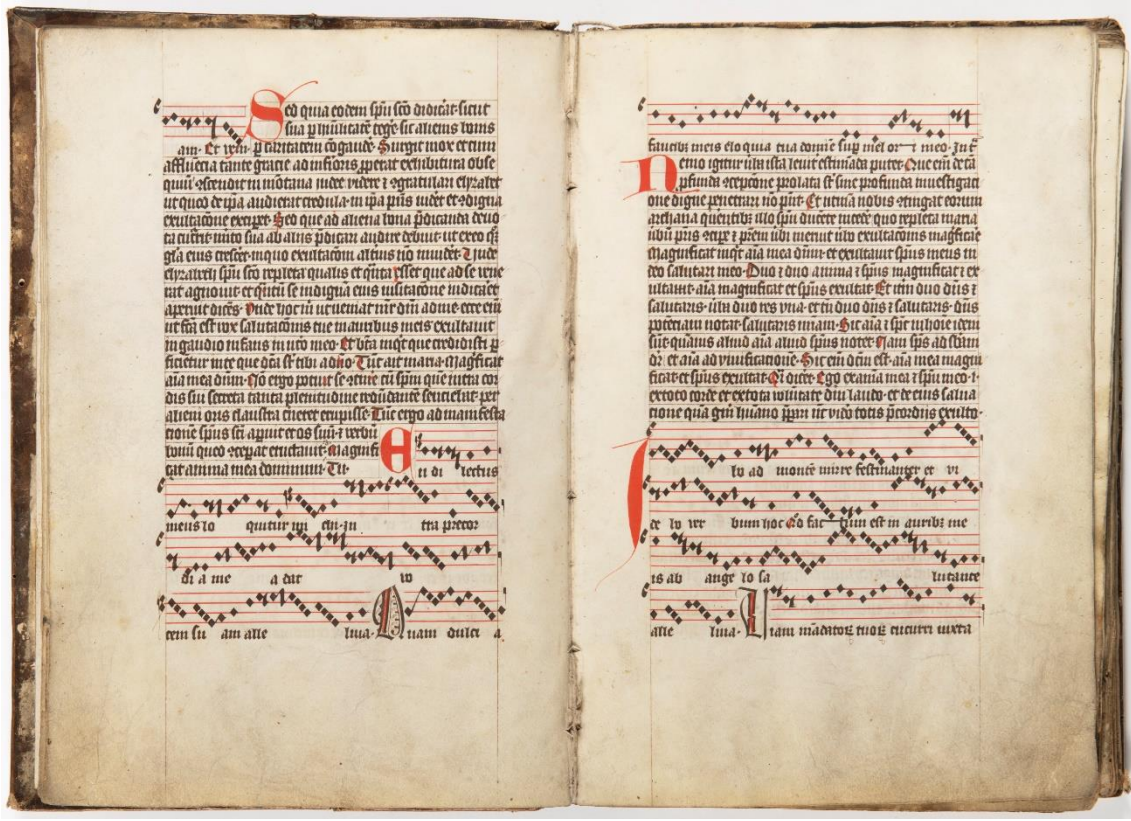 Sed quia eodem spū scō didicāt sicut
sua p hūilitatē tege sic alienis bonis
am· Et p caritatem cogaude· Surgit mox et cum
affluēcia tante gracie ad inferiōs pperat exhibitura obse
quiū ꝯscendit in mōtana iudee videre ⁊ ꝯgratulari elyzabet
ut quod de ip̄a audierat credula· in ip̄a prius videt et ꝯdigna
exultatōne excipet· Sed que ad aliena bona p̄dicanda deuo
ta cūrit mīto sua ab aliis p̄dicari audire debuit· ut
gl̄a eius cresceret inquo exultacoīm alterius nō inuidet· Tūc
elyzabeth spū scō repleta qualis et quāta esset que ad se vene
rat agnouit· et quētū se indignā eius visitacōne iudicaret
aperuit dicēs· Vnde hoc m̄ ut veniat mr̄ dn̄i ad me· ecce em̄
ut fc̄a est vox salutacōnis tue in auribus meis exultauit
in gaudio infans in vtō meo· Et bt̄a inqͭ que credidisti p
ficietur in te que dc̄a st̄ tibi a dn̄o· Tūc ait maria· Magn̄ficat
aīa mea dn̄m· Nō ergo potuit se ꝯtinere
dis sui secreta tanta plenitudine redūdante
alieni oris claustra erupisse· Tūc ergo ad manifesta
cione spūs scī apruit et os suū· ⁊ verbū
bonū quod ꝯceperat eructauit· Magnifi
cat anima mea dominum· Tu·
En di lectus
meus lo quitur m̄ i Intra precor
di a me a dat vo
cem su am alle luia· Quam dulci a
faucib; meis elo quia tua domine sup mel ori meo·
Nemo igitur ista leuit estimāda putet· Que em̄ de tā
p̄funda ꝯcepcōne prolata st̄ sine profunda inuestigaci
one digne penetrari nō pn̄t· Et vtinā nobis ꝯtingat eorum
archana querentib; illo spū ducere inuēte quo repleta maria
v̄bum pr̄is ꝯcipe ⁊ pr̄em v̄bi meruit v̄bo exultacōnis magn̄ficare
Magnificat inqͭ aīa mea dn̄m· et exultauit spūs meus in
deo salutari meo· Duo ⁊ duo anima ⁊ spūs magnificat ⁊ ex
ultauit· aīa magnificat et spūs exultat· Et itē duo dn̄s ⁊
salutaris· duo res vna· et tn̄ duo dn̄s ⁊ salutaris· dn̄s
potēciam notat· salutaris mīam· Sic aīa ⁊ spc̄ in hoīe idem
sūt· quāuis aliud aīa aliud spūs notet· Nam spūs ad
dr̄ et aīa ad viuificacōne· Sic em̄ dcm̄ est· aīa mea magni
ficat· et spūs exultat· Ac si diceret· Ego ex aīa mea ⁊ spū meo·
ex toto corde et ex tota volūtate dn̄m laudo· et de eius salua
cione quā gn̄i huāno ut video totis p̄cordiis exulto·
In lo ad monte mirre festinanter et vi
de lo ver bum hoc Qd fac tum est in aurib; me
is ab ange lo sa lutante
alle luia· Uiam mādatoꝝ tuoꝝ cucurri iuxta